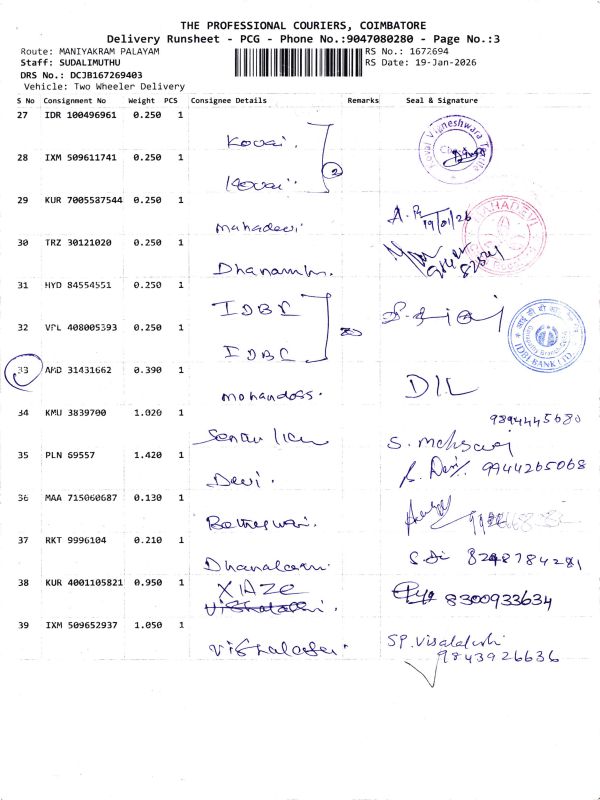 THE PROFESSIONAL COURIERS, COIMBATORE
Delivery Runsheet - PCG - Phone No.:9047080280 - Page No.:3
Route: MANIYAKRAM PALAYAM RS No.: 1672694
Staff: SUDALIMUTHU RS Date: 19-Jan-2026
DRS No.: DCJB167269403
Vehicle: Two Wheeler Delivery
S No Consignment No Weight PCS Consignee Details Remarks Seal & Signature
27 IDR 100496961 0.250 1
Kovai.
28 IXM 509611741 0.250 1
Kovai 2
29 KUR 7005587544 0.250 1
mahadevi 19/01/26
30 TRZ 30121020 0.250 1
31 HYD 84554551 0.250 1
IDBI
32 VPL 408005393 0.250 1
IDBI
IDBI BANK LTD.
33 AMD 31431662 0.390 1
mohandoss. DIL
34 KMU 3839700 1.020 1
9894445680
35 PLN 69557 1.420 1
Devi. 9944265068
36 MAA 715060687 0.130 1
37 RKT 9996104 0.210 1
38 KUR 4001105821 0.950 1
8300933634
39 IXM 509652937 1.050 1
SP. Visalakshi
9843926636